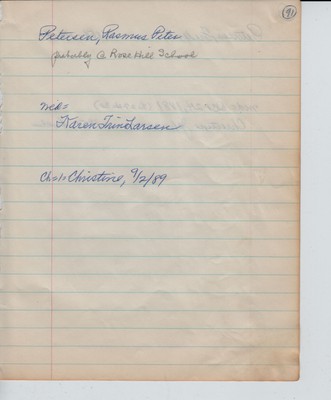 91
Petersen, Rasmus Peter
probably @ Rose Hill School
md=
Karen Trin Larsen
Ch=1= Christine, 9/2/89